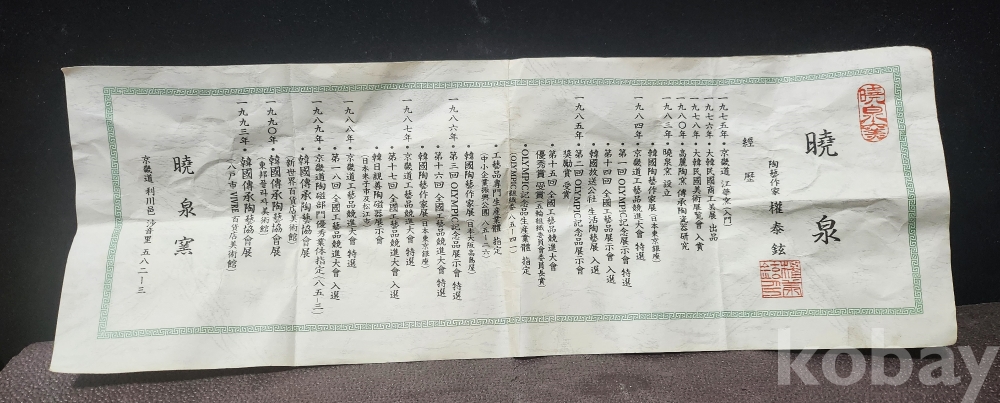 曉泉窯
曉泉
陶藝作家 權泰鉉
經歷
一九七五年・京畿道 江華窯(入門)
一九七六年・大韓民國商工美展 出品
一九七八年・大韓民國美術展覽會 入賞
一九八〇年・高麗陶窯 傳承陶瓷器研究
一九八三年・曉泉窯 設立
・韓國陶藝作家展(日本東京銀座)
一九八四年・京畿道工藝品競進大會 特選
・第一回 OLYMPIC記念展示會 特選
・第十四回 全國工藝品展示會 入選
・韓國放送公社 生活陶藝展 入選
一九八五年・第二回 OLYMPIC記念品展示會
奬勵賞 受賞
・第十五回 全國工藝品競進大會
優秀賞 受賞(五輪組織委員會委員長賞)
・OLYMPIC記念品生産業體 指定
(OLYMPIC組織委 八五-四一)
・工藝品專門生産業體 指定
(中小企業振興公團 八五-二六)
・韓國陶藝作家展(日本大阪高島屋)
一九八六年・第三回 OLYMPIC記念品展示會 特選
・第十六回 全國工藝品競進大會 特選
・韓國陶藝作家展(日本東京銀座)
一九八七年・京畿道工藝品競進大會 特選
・第十七回 全國工藝品競進大會 入選
・韓日親善陶磁器展示會
(日本米子市及松江市)
一九八八年・京畿道工藝品競進大會 入選
・第一八回 全國工藝品競進大會 入選
一九八九年・京畿道陶磁部門優秀業体指定(八五-三一)
・韓國傳承陶藝協會展
(新世界百貨店美術館)
一九九〇年・韓國傳承陶藝協會展
(東邦플라자美術館)
一九九三年・韓國傳承陶藝協會展
(八戶市 VIVRE百貨店美術館)
曉泉窯
京畿道 利川邑 沙音里 五八二-三
kobay